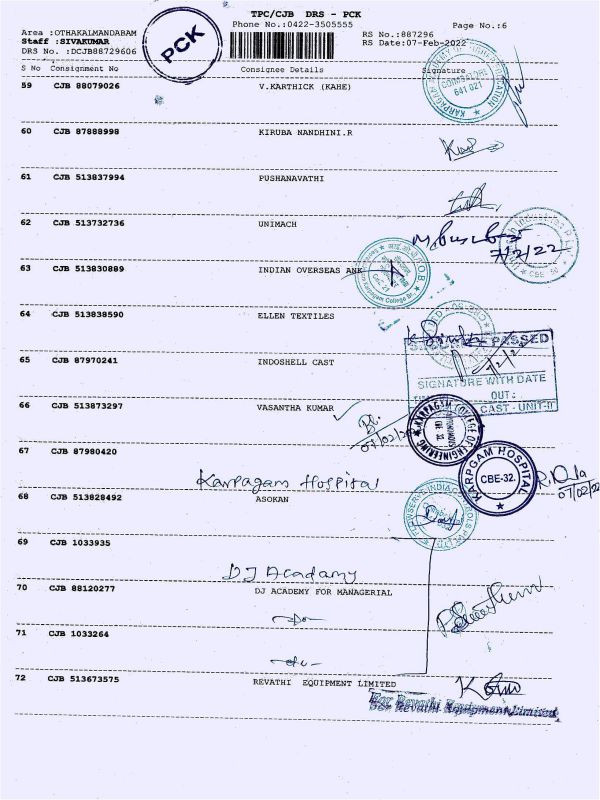 TPC/CJB DRS - PCK
Phone No.:0422-3505555
Page No.:6
Area :OTHAKALMANDABAM
Staff :SIVAKUMAR
DRS No. :DCJB88729606
PCK
RS No.:887296
RS Date:07-Feb-2022
S No Consignment No Consignee Details Signature
59 CJB 88079026 V.KARTHICK (KAHE)
COIMBATORE
641 021
60 CJB 87888998 KIRUBA NANDHINI.R
61 CJB 513837994 PUSHANAVATHI
62 CJB 513732736 UNIMACH
7/2/22
CBE - 50
63 CJB 513830889 INDIAN OVERSEAS ANK
64 CJB 513838590 ELLEN TEXTILES
PASSED
65 CJB 87970241 INDOSHELL CAST
SIGNATURE WITH DATE
OUT :
CAST - UNIT-II
66 CJB 513873297 VASANTHA KUMAR
KARPAGAM COLLEGE OF ENGINEERING
67 CJB 87980420
Karpagam Hospital
KARPGAM HOSPITAL
CBE-32.
07/02/22
68 CJB 513828492 ASOKAN
69 CJB 1033935
DJ Acadamy
70 CJB 88120277 DJ ACADEMY FOR MANAGERIAL
-Do-
71 CJB 1033264
72 CJB 513673575 REVATHI EQUIPMENT LIMITED
For Revathi Equipment Limited